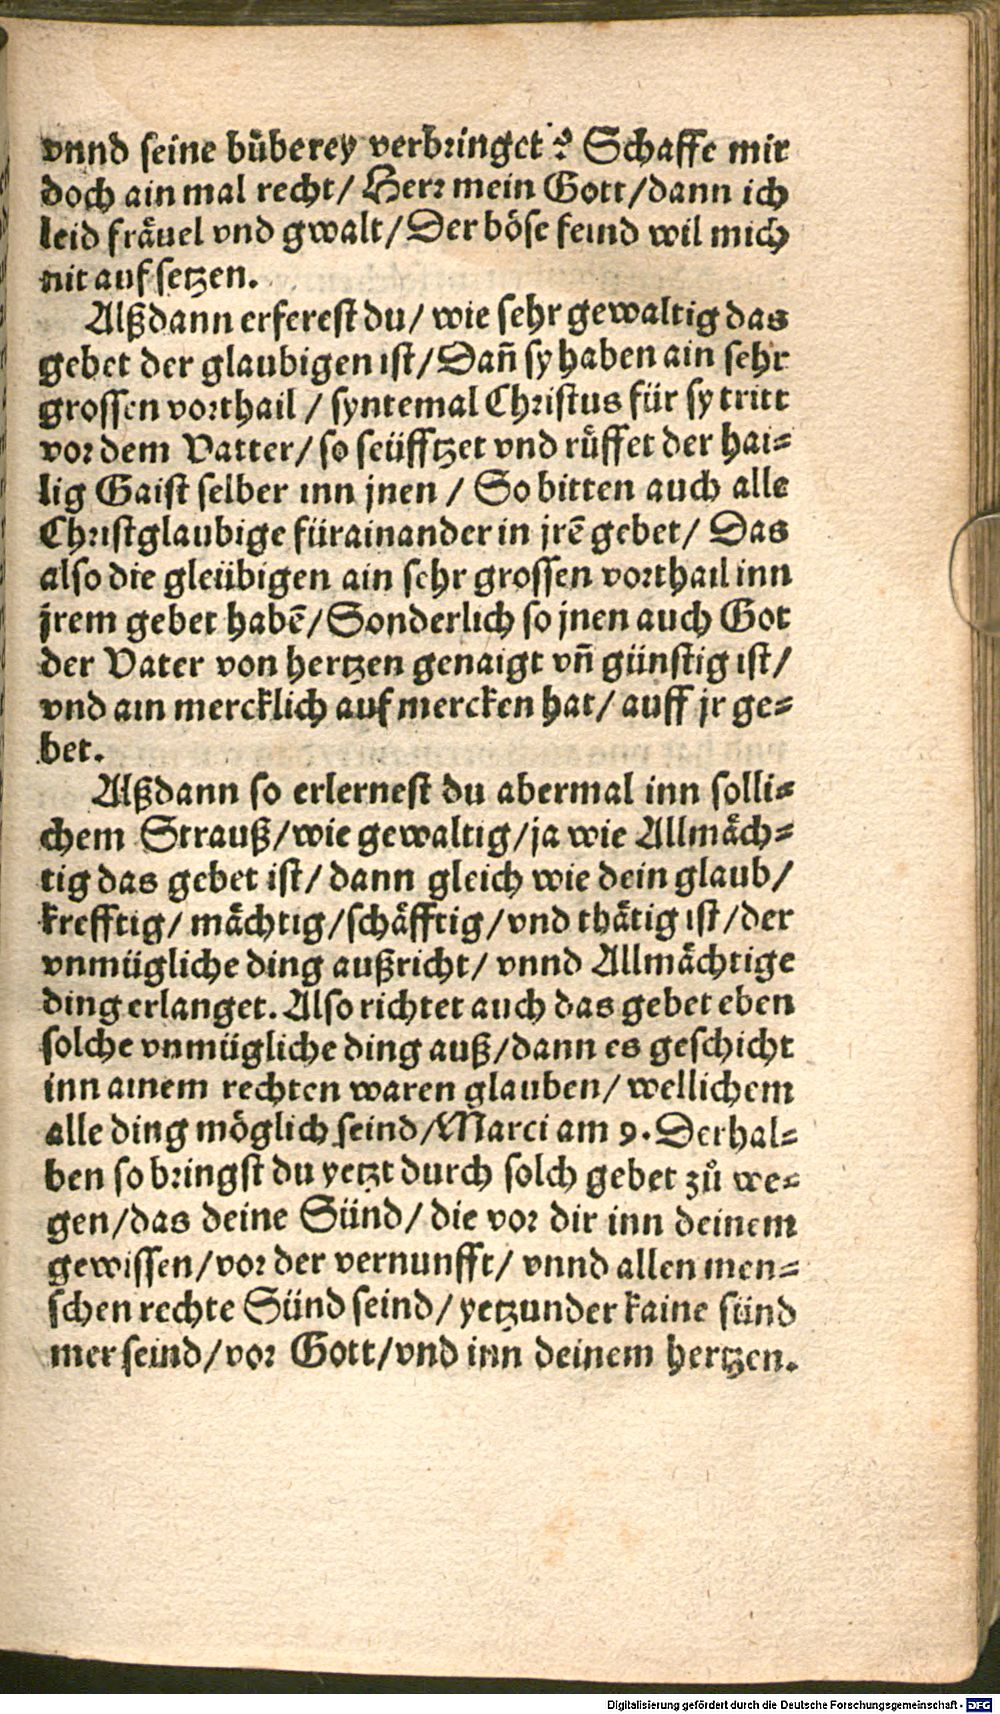 vnnd seine bůberey verbringet? Schaffe mir
doch ain mal recht/ Herr mein Gott/dann ich
leid fräuel vnd gwalt/ Der böse feind wil mich
nit auf setzen.
Alßdann erferest du/ wie sehr gewaltig das
gebet der glaubigen ist/ Dañ sy haben ain sehr
grossen vorthail / syntemal Christus für sy tritt
vor dem Vatter/ so seüfftzet vnd rüffet der hai⸗
lig Gaist selber inn jnen / So bitten auch alle
Christglaubige fürainander in jrē gebet/ Das
also die gleübigen ain sehr grossen vorthail inn
jrem gebet habē/ Sonderlich so jnen auch Got
der Vater von hertzen genaigt vñ günstig ist/
vnd ain mercklich auf mercken hat/ auff jr ge⸗
bet.
Alßdann so erlernest du abermal inn solli⸗
chem Strauß/ wie gewaltig/ ja wie Allmäch⸗
tig das gebet ist/ dann gleich wie dein glaub/
krefftig/ mächtig/ schäfftig/ vnd thätig ist/ der
vnmügliche ding außricht/ vnnd Allmächtige
ding erlanget. Also richtet auch das gebet eben
solche vnmügliche ding auß/ dann es geschicht
inn ainem rechten waren glauben/ wellichem
alle ding möglich seind/ Marci am 9. Derhal⸗
ben so bringst du yetzt durch solch gebet zů we⸗
gen/ das deine Sünd/ die vor dir inn deinem
gewissen/ vor der vernunfft/ vnnd allen men⸗
schen rechte Sünd seind/ yetzunder kaine sünd
mer seind/ vor Gott/ vnd inn deinem hertzen.
Digitalisierung gefördert durch die Deutsche Forschungsgemeinschaft - DFG